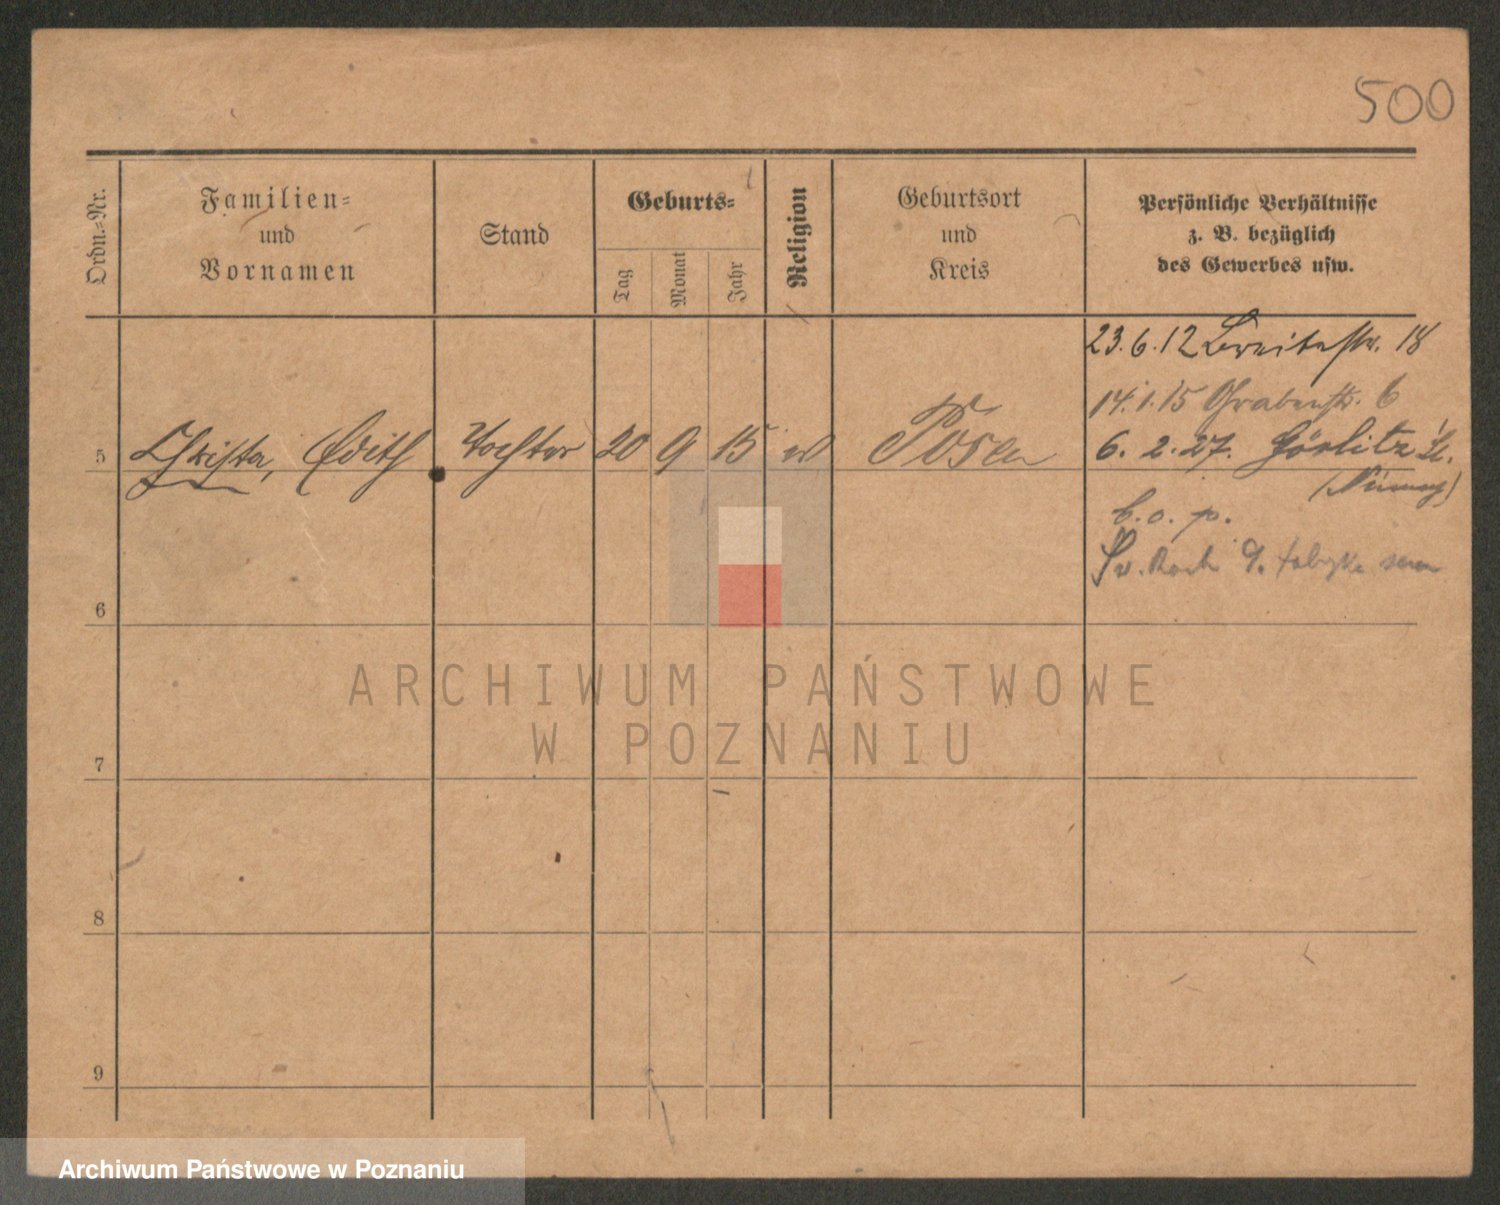 500
Ordn.-Nr.
Familien-
und
Vornamen
Stand
Geburts-
Tag
Monat
Jahr
Religion
Geburtsort
und
Kreis
Persönliche Verhältnisse
z. B. bezüglich
des Gewerbes usw.
23.6.12 Breitestr. 18
14.1.15 Grabenstr. 6
5 Christa, Edith Tochter 20 9 15 Posen
6. 2. 27. Görlitz
b. o. p.
6
7
8
9
ARCHIWUM PAŃSTWOWE
W POZNANIU
Archiwum Państwowe w Poznaniu